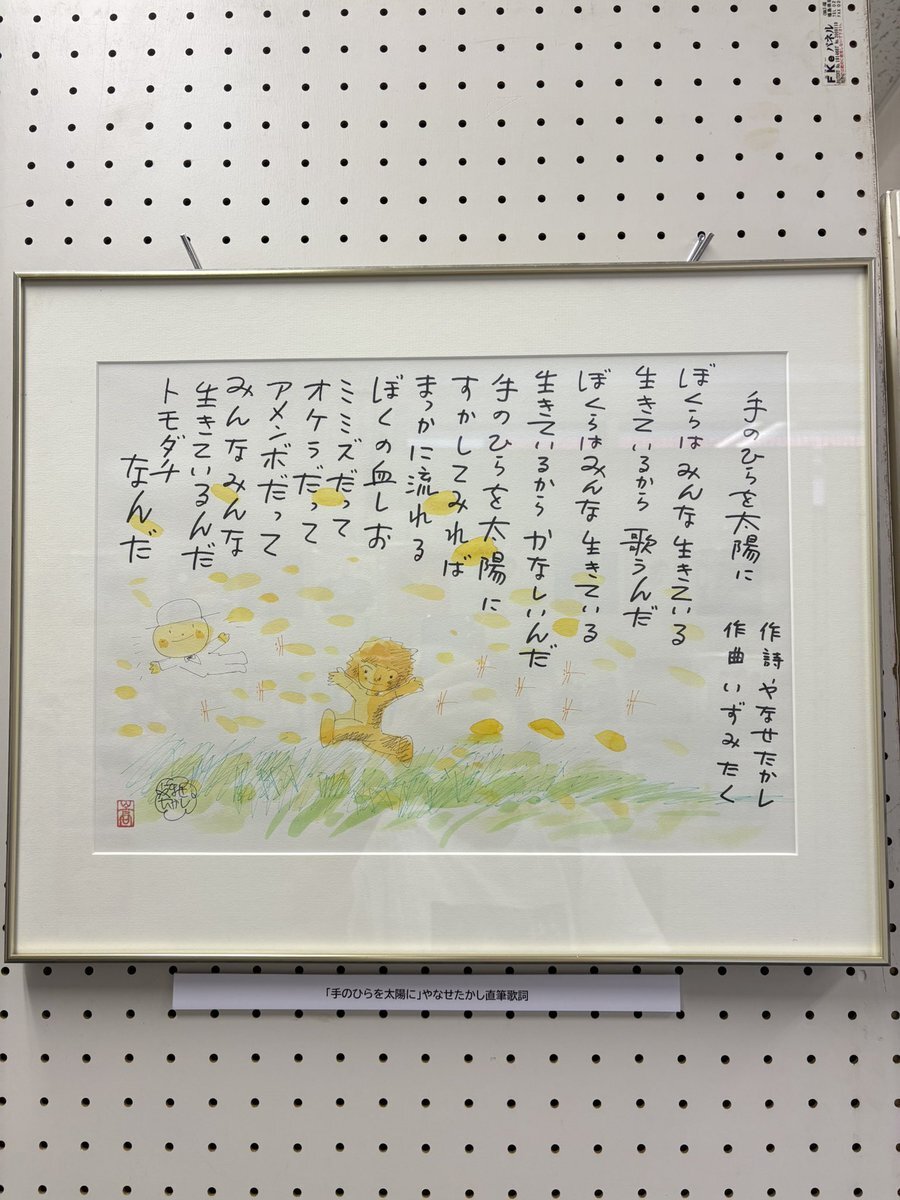 手のひらを太陽に
作詩 やなせたかし
作曲 いずみたく
ぼくらはみんな生きている
生きているから 歌うんだ
ぼくらはみんな生きている
生きているから かなしいんだ
手のひらを太陽に
すかしてみれば
まっかに流れる
ぼくの血しお
ミミズだって
オケラだって
アメンボだって
みんなみんな
生きているんだ
トモダチ
なんだ
やなせ
たかし
「手のひらを太陽に」やなせたかし直筆歌詞
FKeパネル